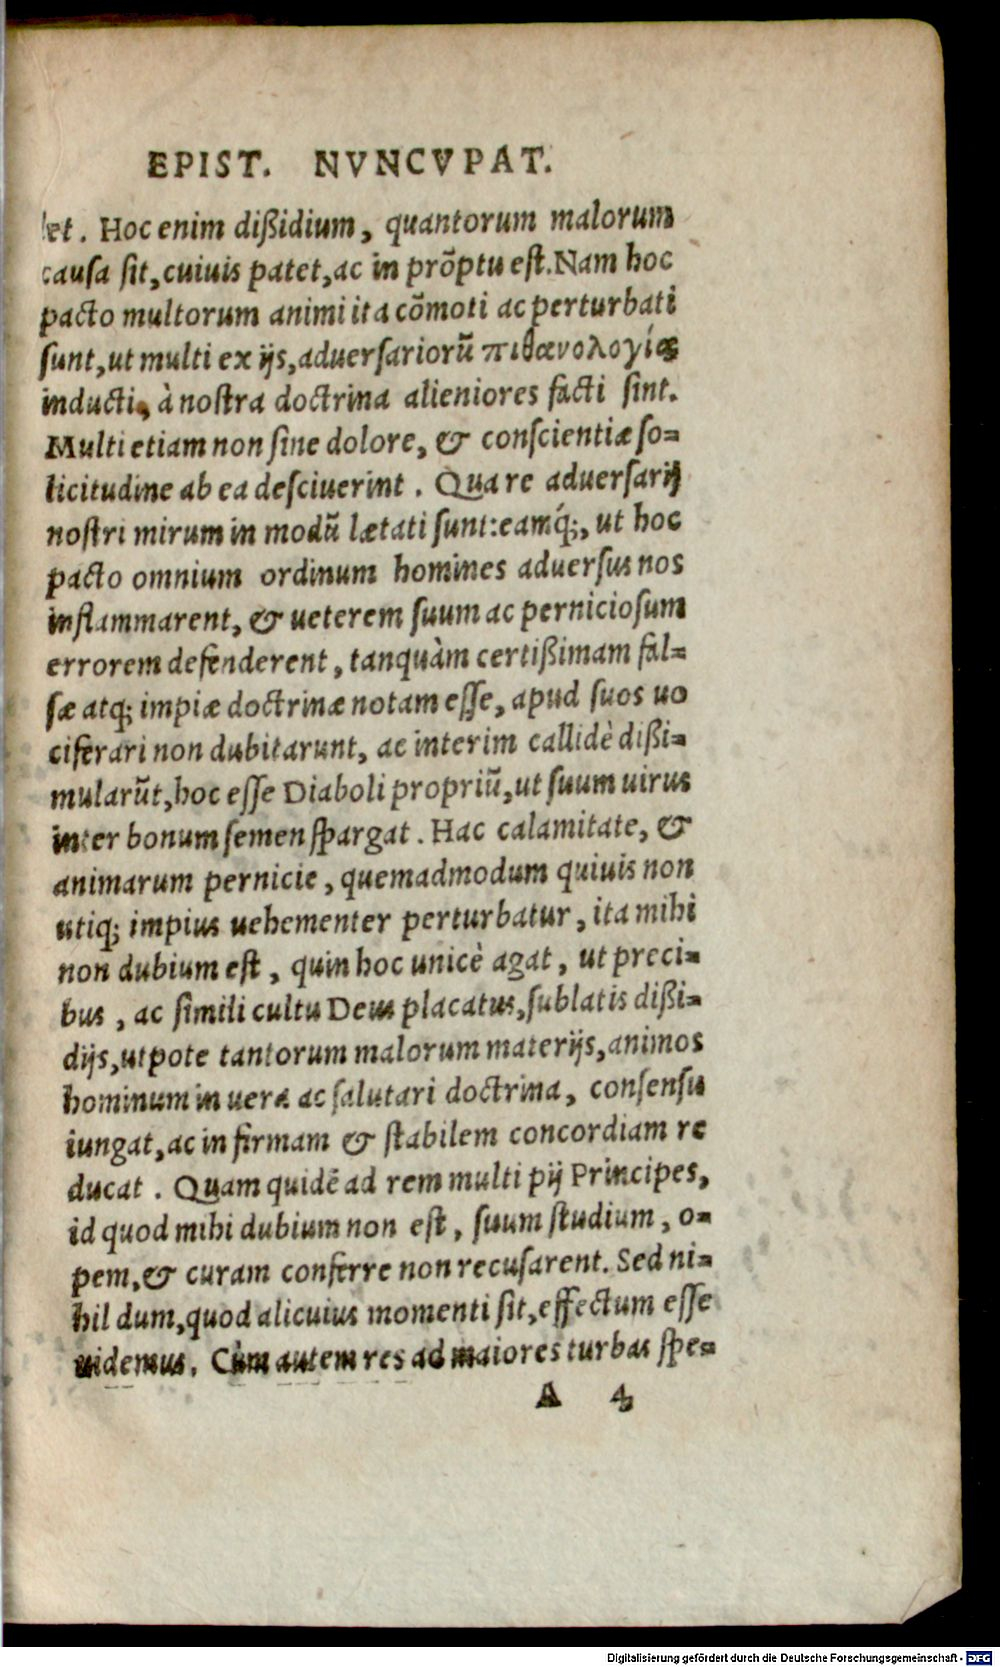 EPIST. NVNCVPAT.
let. Hoc enim dißidium, quantorum malorum
causa sit, cuiuis patet, ac in prõptu est. Nam hoc
pacto multorum animi ita cõmoti ac perturbati
sunt, ut multi ex ijs, aduersariorũ πιθανολογίας
inducti, à nostra doctrina alieniores facti sint.
Multi etiam non sine dolore, & conscientiæ so=
licitudine ab ea desciuerint. Quare aduersarij
nostri mirum in modũ lætati sunt: eamq́;, ut hoc
pacto omnium ordinum homines aduersus nos
inflammarent, & ueterem suum ac perniciosum
errorem defenderent, tanquàm certißimam fal=
sæ atq; impiæ doctrinæ notam esse, apud suos uo
ciferari non dubitarunt, ac interim callidè dißi=
mularũt, hoc esse Diaboli propriũ, ut suum uirus
inter bonum semen spargat. Hac calamitate, &
animarum pernicie, quemadmodum quiuis non
utiq; impius uehementer perturbatur, ita mihi
non dubium est, quin hoc unicè agat, ut preci=
bus, ac simili cultu Deus placatus, sublatis dißi=
dijs, utpote tantorum malorum materijs, animos
hominum in uera ac salutari doctrina, consensu
iungat, ac in firmam & stabilem concordiam re
ducat. Quam quidẽ ad rem multi pij Principes,
id quod mihi dubium non est, suum studium, o=
pem, & curam conferre non recusarent. Sed ni=
hil dum, quod alicuius momenti sit, effectum esse
uidemus. Cùm autem res ad maiores turbas spe=
A 4
Digitalisierung gefördert durch die Deutsche Forschungsgemeinschaft - DFG